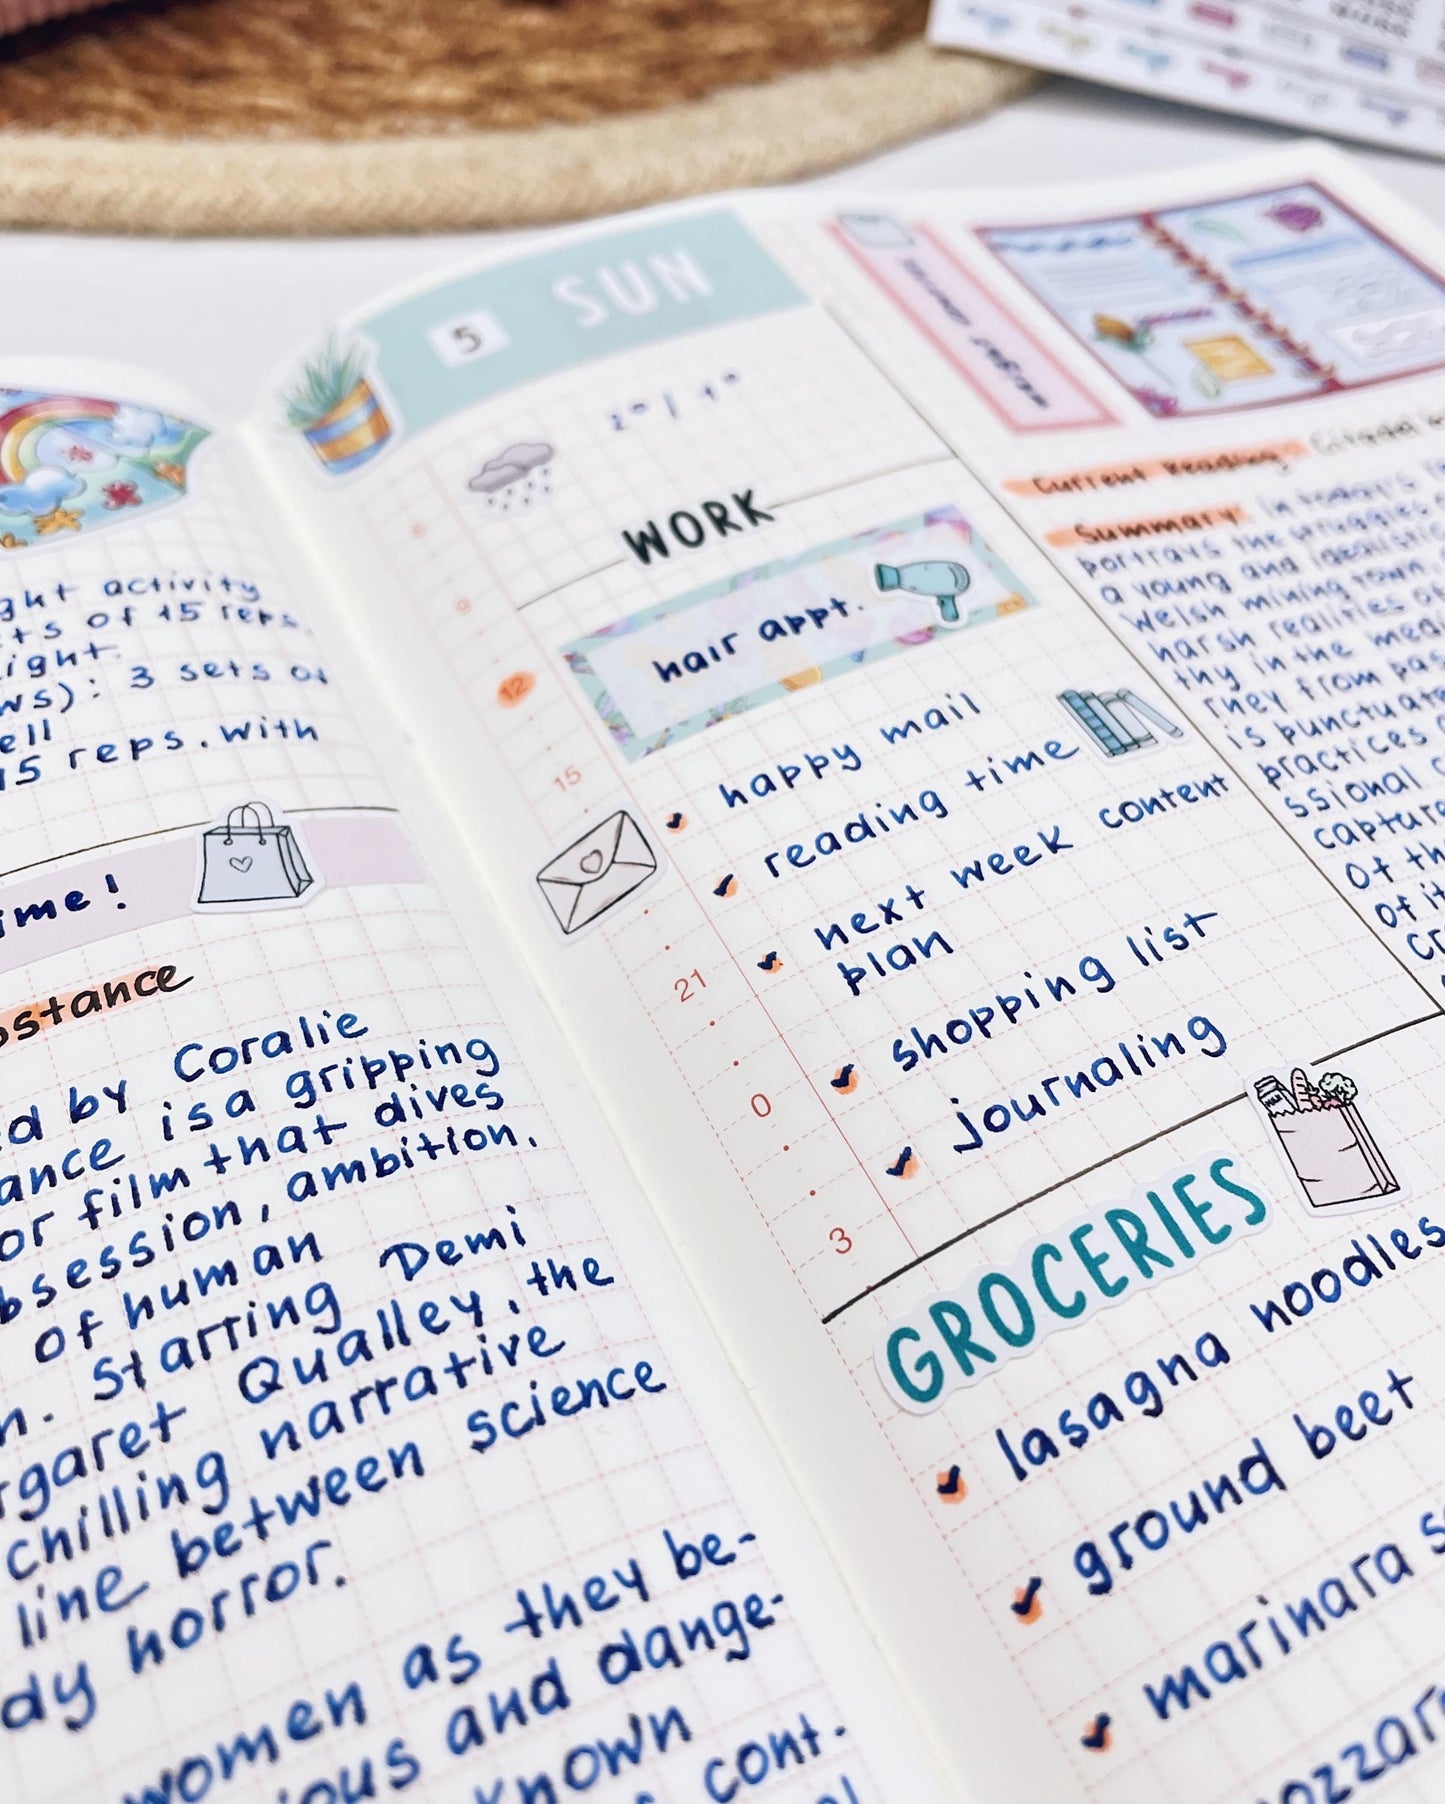 ght activity
ts of 15 reps.
ight.
ws): 3 sets of
ell
15 reps. with
ime!
bstance
ed by Coralie
ance is a gripping
or film that dives
bsession, ambition,
of human
n. Starring Demi
rgaret Qualley, the
chilling narrative
line between science
dy horror.
women as they be-
ious and dange-
known
cont.
5 SUN
WORK
hair appt.
happy mail
reading time
next week content
plan
shopping list
journaling
6
9
12
15
21
0
3
GROCERIES
lasagna noodles
ground beet
marinara s
ozzar
Current Reading: Citadel
Summary: In today's re
portrays the struggles
a young and idealistic
Welsh mining town.
harsh realities o
thy in the medi
rney from pas
is punctuate
practices
ssional c
capture
of th
of it
cr